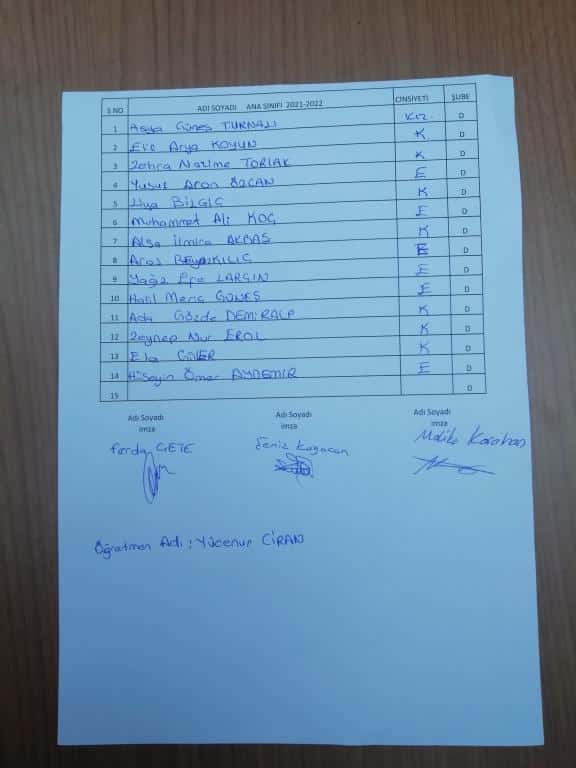 S NO ADI SOYADI ANA SINIFI 2021-2022 CİNSİYETİ ŞUBE
1 Asya Güneş TURNALI Kız. D
2 Arya KOYUN K D
3 Zehra Nazime TORLAK K D
4 Yusuf Aron ÖZCAN E D
5 BİLGİÇ K D
6 Muhammet Ali KOÇ E D
7 Alsa İlmira AKBAŞ K D
8 Aras KILIÇ E D
9 Yağız Efe LARGIN E D
10 Halil Meriç GÜNEŞ E D
11 Ada Gözde DEMİRALP K D
12 Zeynep Nur EROL K D
13 Ela GÜLER K D
14 Hüseyin Ömer AYDEMİR E D
15 D
Adı Soyadı Adı Soyadı Adı Soyadı
imza imza imza
Ferda GETE Melike Karahan
Öğretmen Adı : Yücenur CİRAN